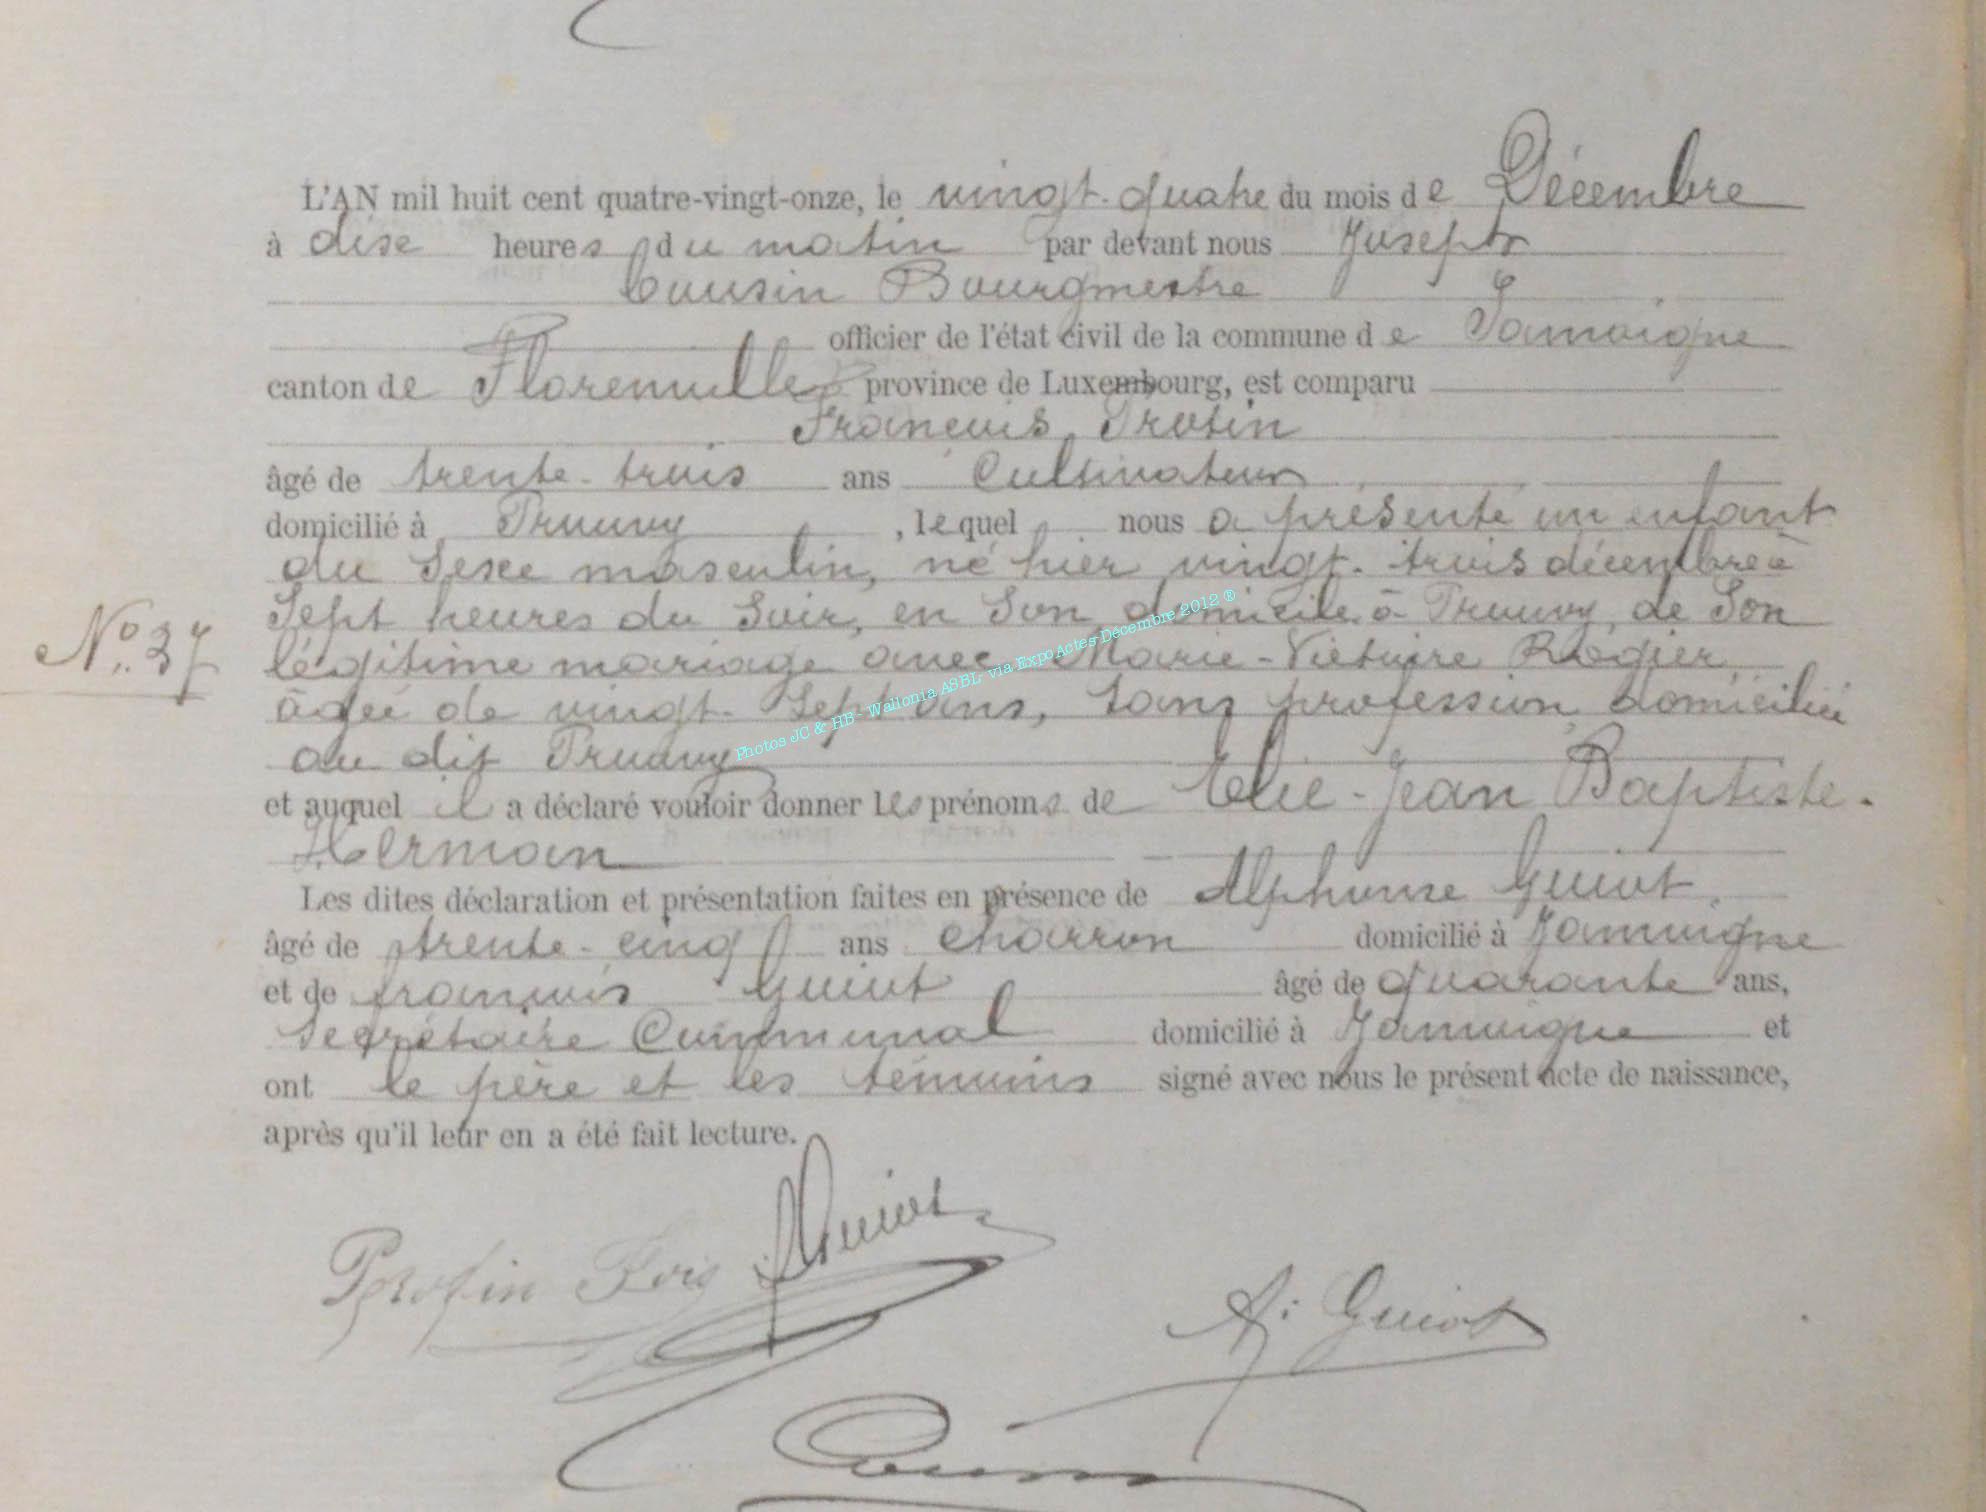 L'AN mil huit cent quatre-vingt-onze, le vingt-quatre du mois de Décembre
à dixe heures du matin par devant nous Joseph
Cousin Bourgmestre
officier de l'état civil de la commune de Jamoigne
canton de Florenville province de Luxembourg, est comparu
François Protin
âgé de trente-trois ans Cultivateur
domicilié à Prouvy, lequel nous a présenté un enfant
du Sexe masculin, né hier vingt-trois décembre à
Sept heures du Soir, en Son domicile à Prouvy, de Son
légitime mariage avec Marie-Victoire Rogier
âgée de vingt-Sept ans, Sans profession domiciliée
au dit Prouvy
et auquel il a déclaré vouloir donner les prénoms de Elie-Jean Baptiste-
Herman
Les dites déclaration et présentation faites en présence de Alphonse Guiot,
âgé de trente-cinq ans charron domicilié à Jamoigne
et de françois Guiot âgé de quarante ans,
Secrétaire Communal domicilié à Jamoigne et
ont le père et les témoins signé avec nous le présent acte de naissance,
après qu'il leur en a été fait lecture.
No 37
Photos JC & HB - Wallonia ASBL via ExpoActes-Décembre 2012 ®
Protin Fois Guiot
A: Guiot
Cousin